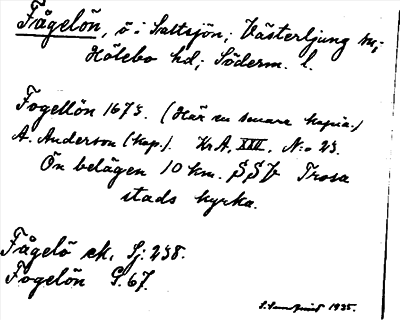 Fågelön, ö i Saltsjön; Västerljung sn;
Hölebo hd; Söderm. l.
Fogellön 1673. (Här en senare kopia.)
A. Anderson (kop.). Kr A, XIII, N:o 23.
Ön belägen 10 km. SSV Trosa
stads kyrka.
Fågelö ek. Sj: 238.
Fogelön G. 67.
1935.